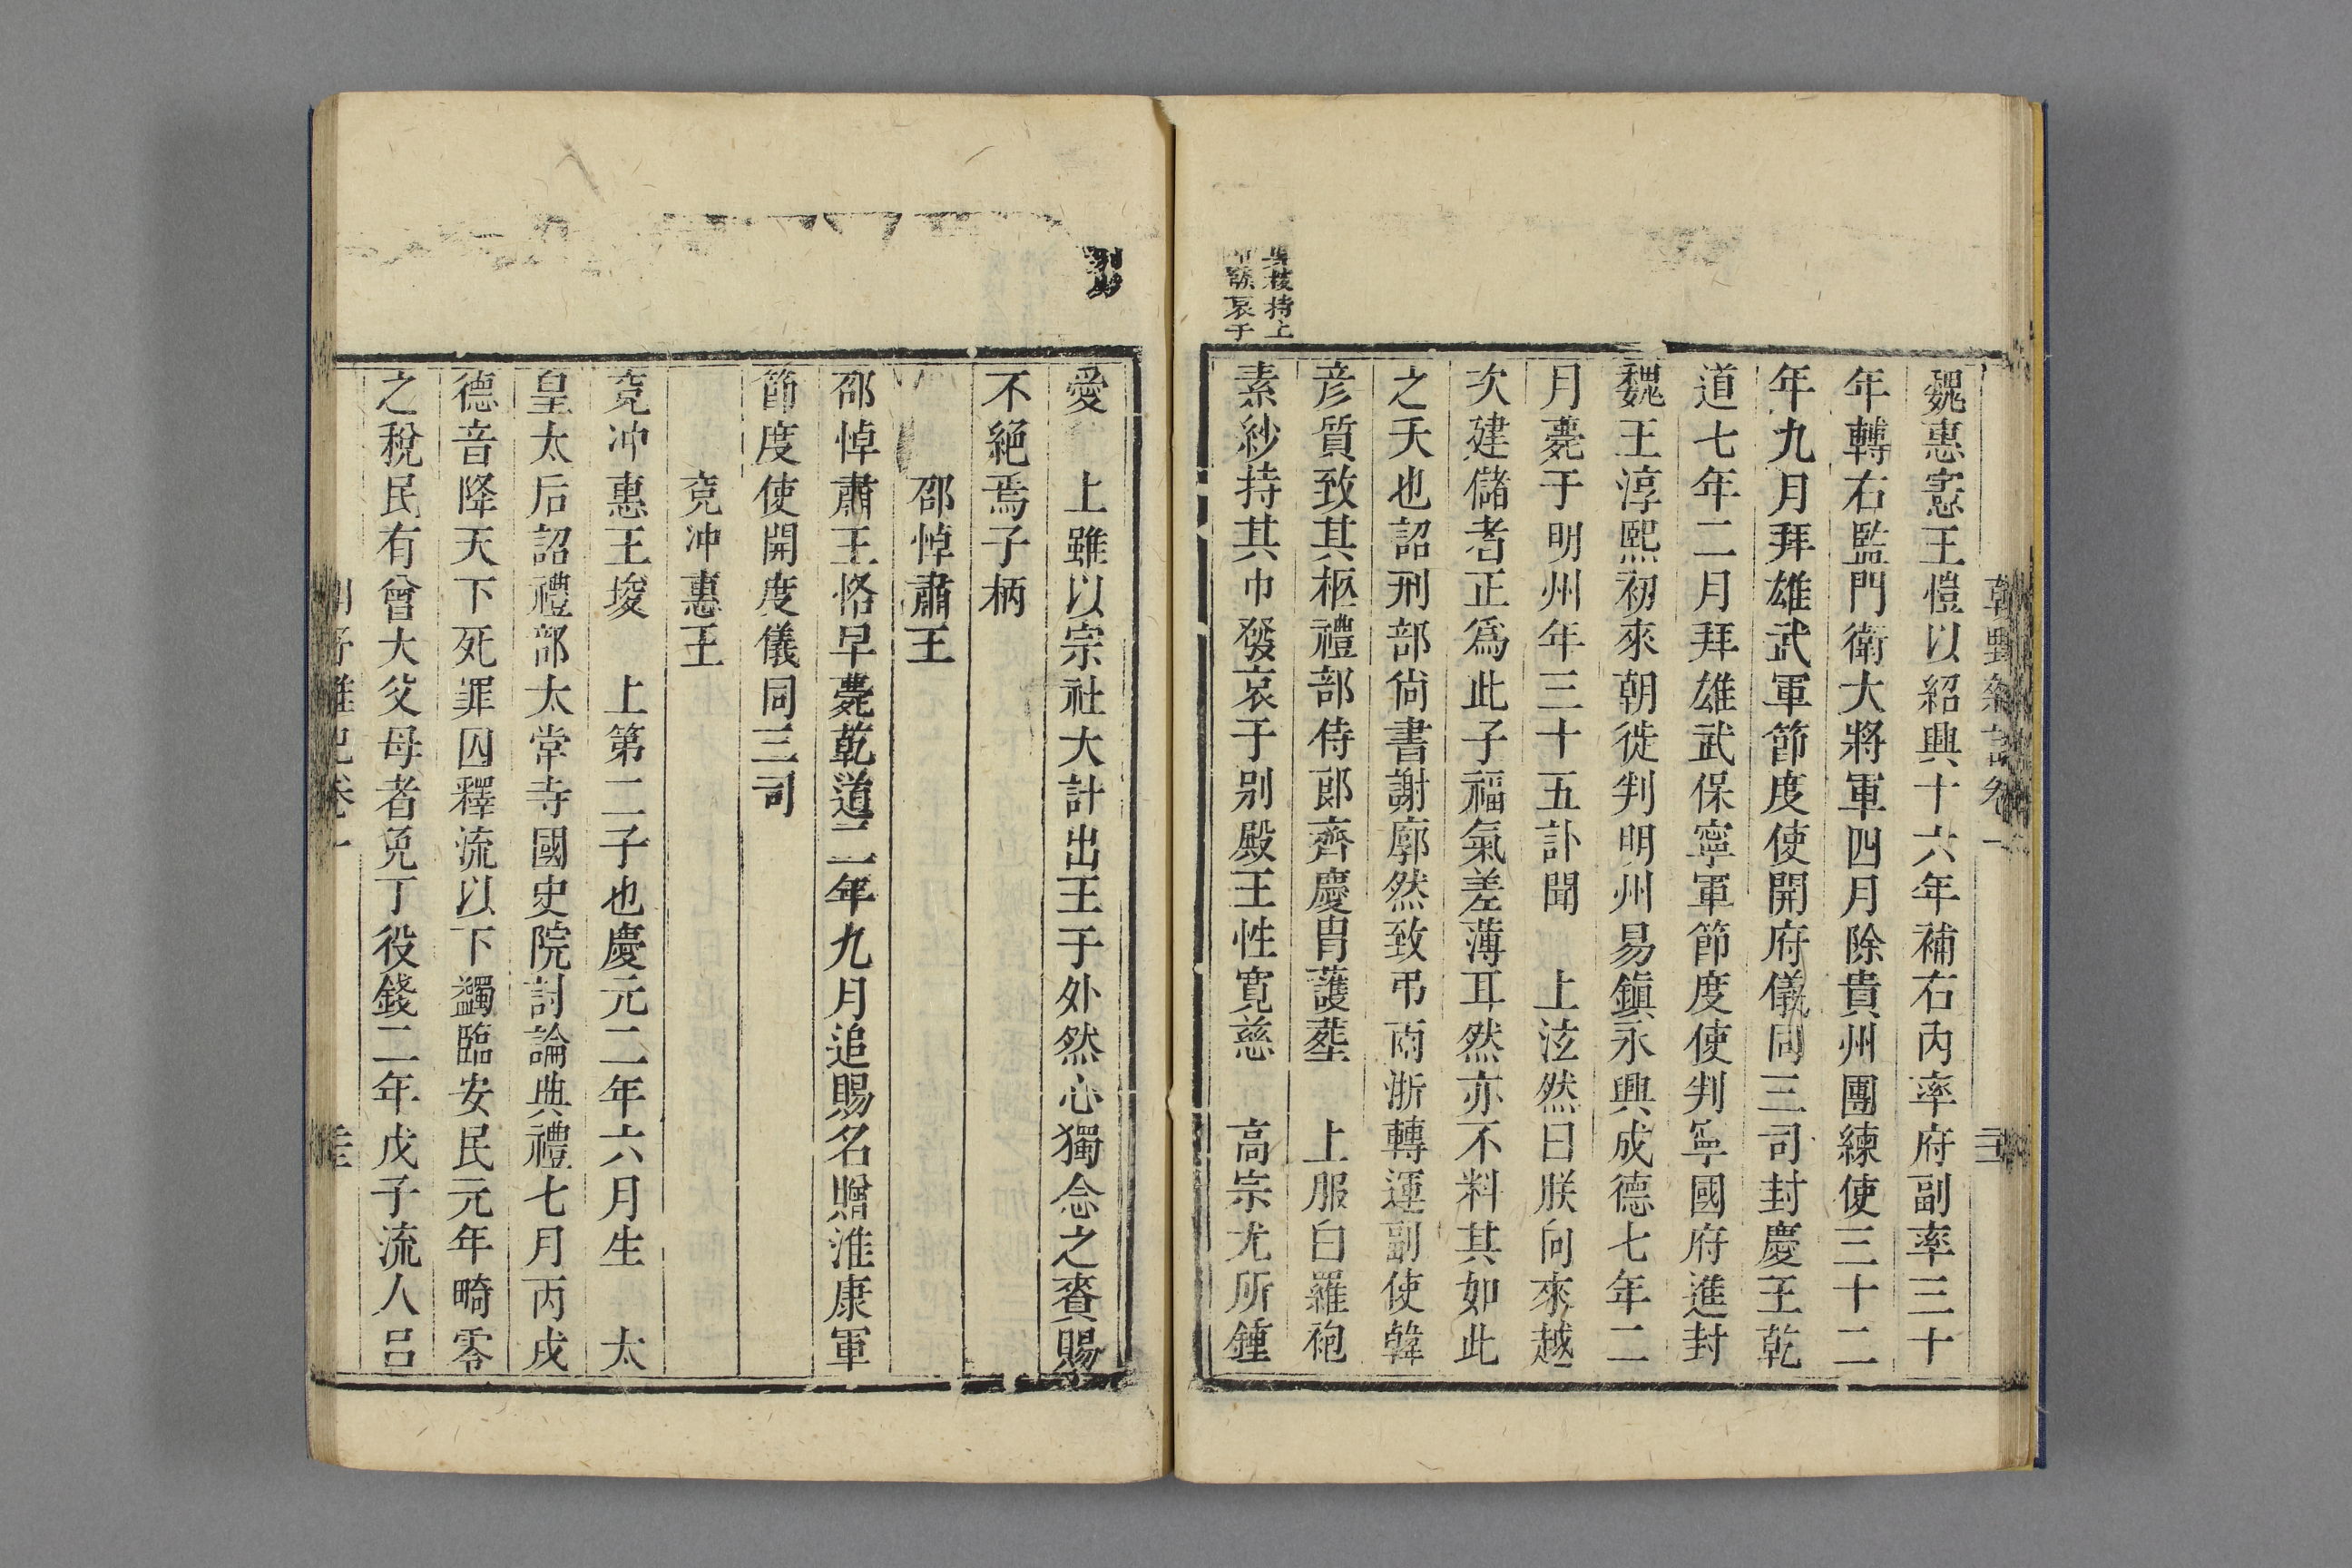 朝野雜記卷一
魏惠憲王愷以紹興十六年補右內率府副率三十
年轉右監門衛大將軍四月除貴州團練使三十二
年九月拜雄武軍節度使開府儀同三司封慶王乾
道七年二月拜雄武保寧軍節度使判寧國府進封
魏王淳熙初來朝徙判明州易鎭永興成德七年二
月薨于明州年三十五訃聞　上泫然曰朕向來越
次建儲者正爲此子福氣差薄耳然亦不料其如此
之夭也詔刑部尙書謝廓然致弔兩浙轉運副使韓
彥質致其柩禮部侍郎齊慶胄護塟　上服白羅袍
素紗持其巾發哀于别殿王性寬慈　高宗尤所鍾
持上
哀于
愛　上雖以宗社大計出王于外然心獨念之賚賜
不絕焉子柄
邵悼肅王
邵悼肅王恪早薨乾道二年九月追賜名贈淮康軍
節度使開度儀同三司
兖冲惠王
兖冲惠王埈　上第二子也慶元二年六月生　太
皇太后詔禮部太常寺國史院討論典禮七月丙戌
德音降天下死罪囚釋流以下蠲臨安民元年畸零
之稅民有曾大父母者免丁役錢二年戊子流人呂